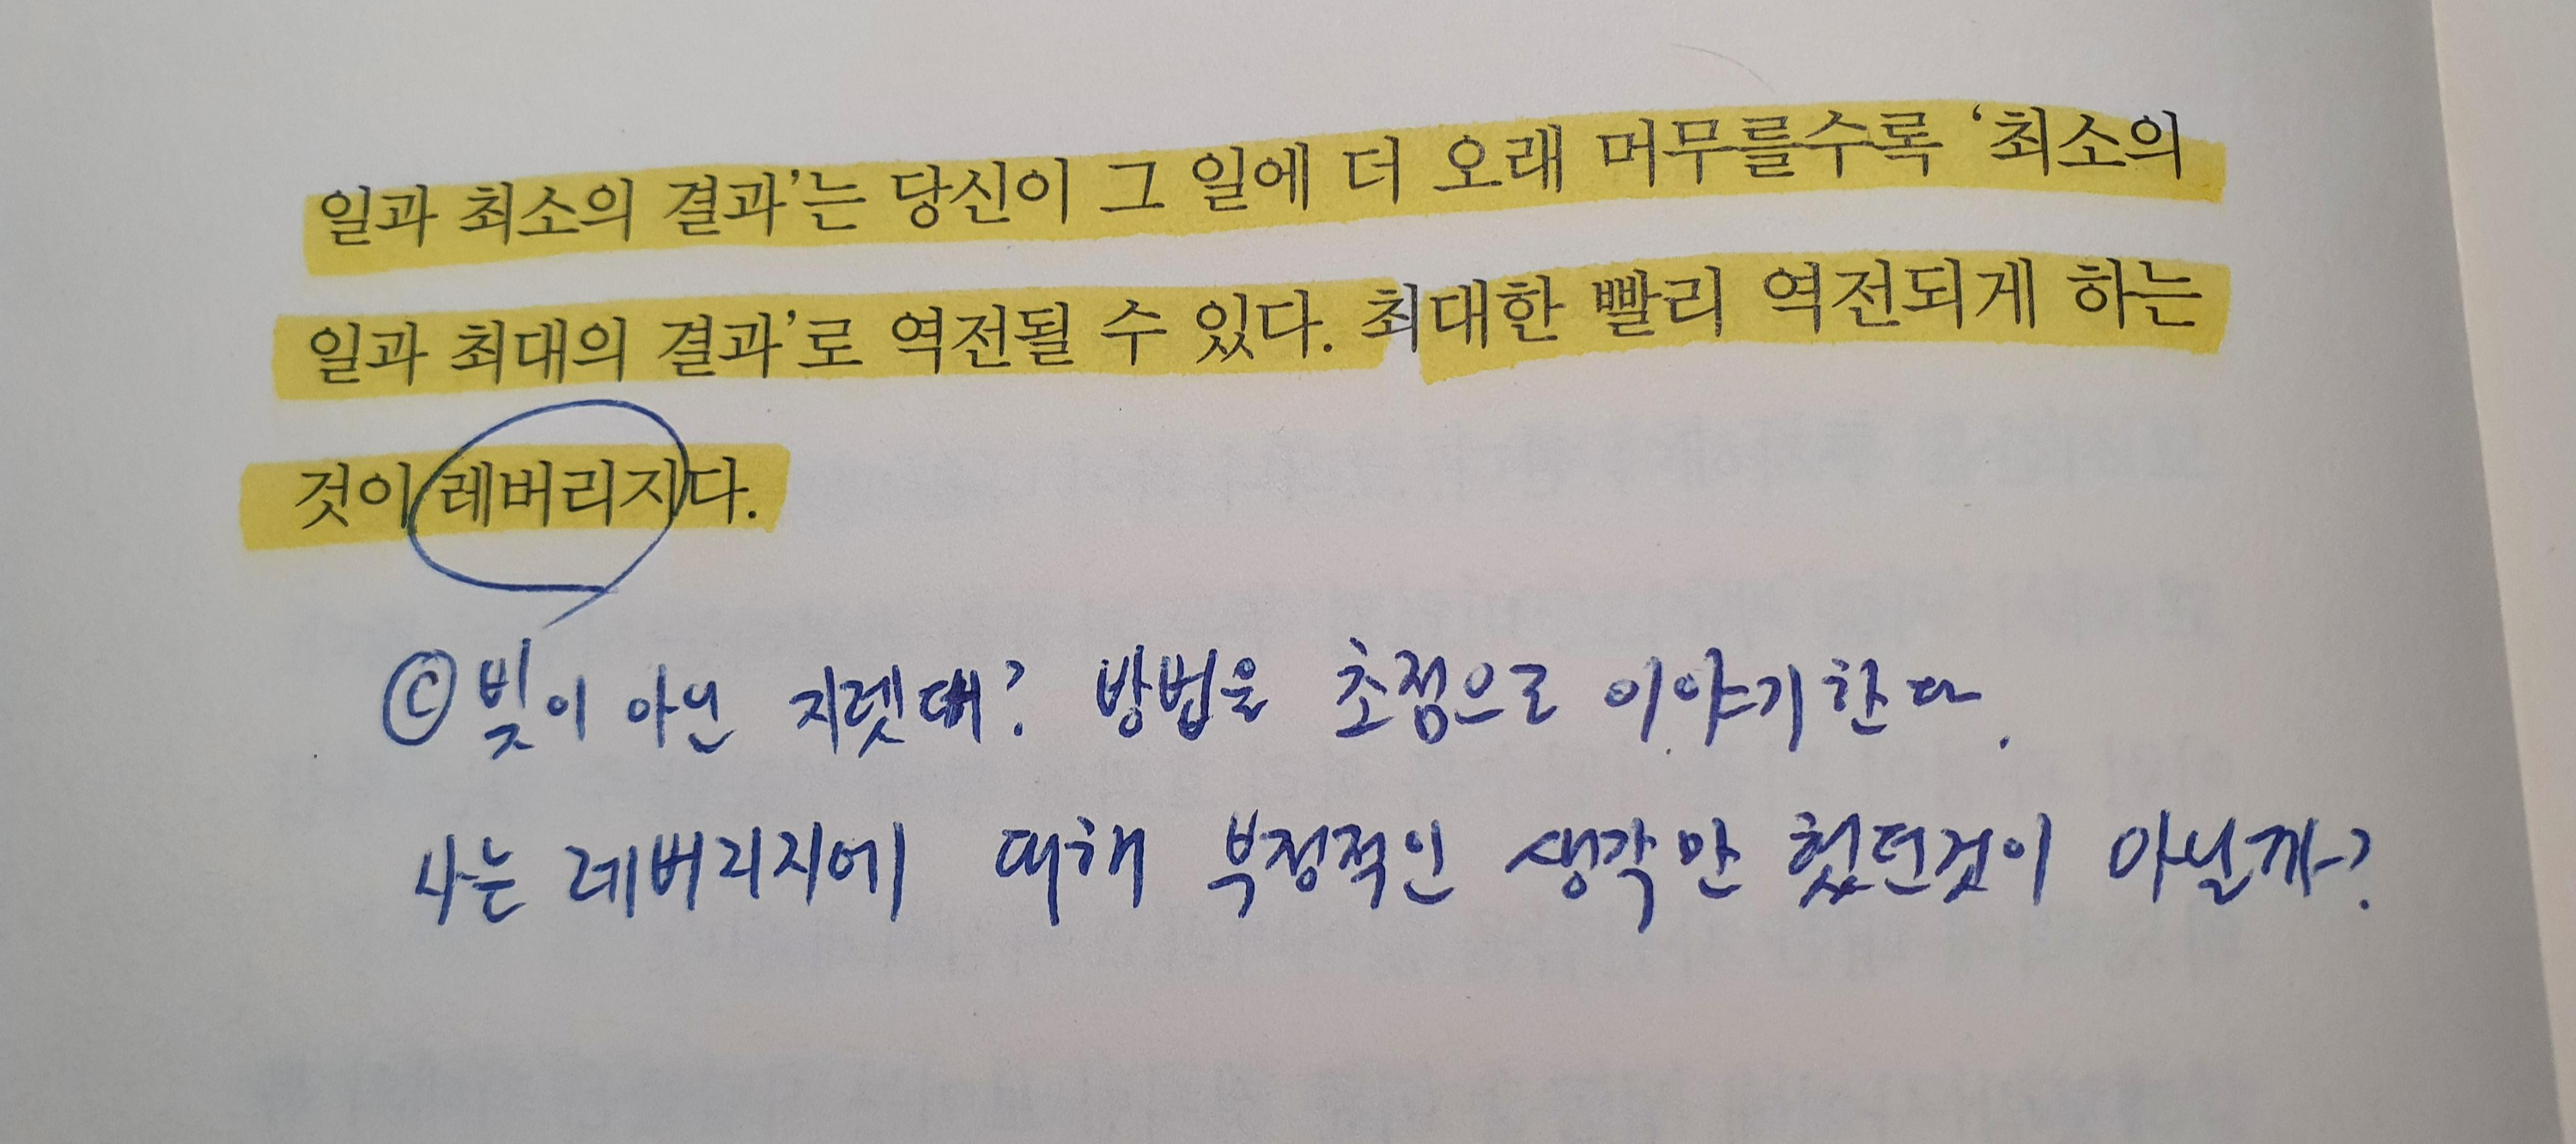 일과 최소의 결과’는 당신이 그 일에 더 오래 머무를수록 ‘최소의
일과 최대의 결과’로 역전될 수 있다. 최대한 빨리 역전되게 하는
것이 레버리지다.
ⓒ 빚이 아닌 지렛대? 방법을 초점으로 이야기한다.
나는 레버리지에 대해 부정적인 생각만 했던것이 아닐까?